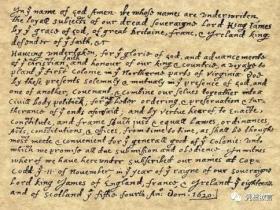 In yͤ name of god Amen. We whose names are underwriten,
the loyall subjects of our dread soveraigne Lord King James
by yͤ grace of god, of great Britaine, franc, & Ireland king,
defender of yͤ faith, &c
Haveing undertaken, for yͤ glorie of god, and advancemente
of yͤ christian faith and honour of our king & countrie, a voyage to
plant yͤ first colonie in yͤ Northerne parts of Virginia. Doe
by these presents solemnly & mutualy in yͤ presence of god, and
one of another, covenant, & combine our selves togeather into a
civill body politick; for our better ordering, & preservation & fur-
therance of yͤ ends aforesaid; and by vertue hearof to enacte,
constitute, and frame shuch just & equall lawes, ordinances,
Acts, constitutions, & offices, from time to time, as shall be thought
most meete & convenient for yͤ generall good of yͤ colonie: unto
which we promise all due submission and obedience. In witnes
wherof we have hereunder subscribed our names at Cap-
Codd yͤ .11. of November, in yͤ year of yͤ raigne of our soveraigne
Lord king James of England, france, & Ireland yͤ eighteenth
and of Scotland yͤ fiftie fourth. An: Dom. 1620.